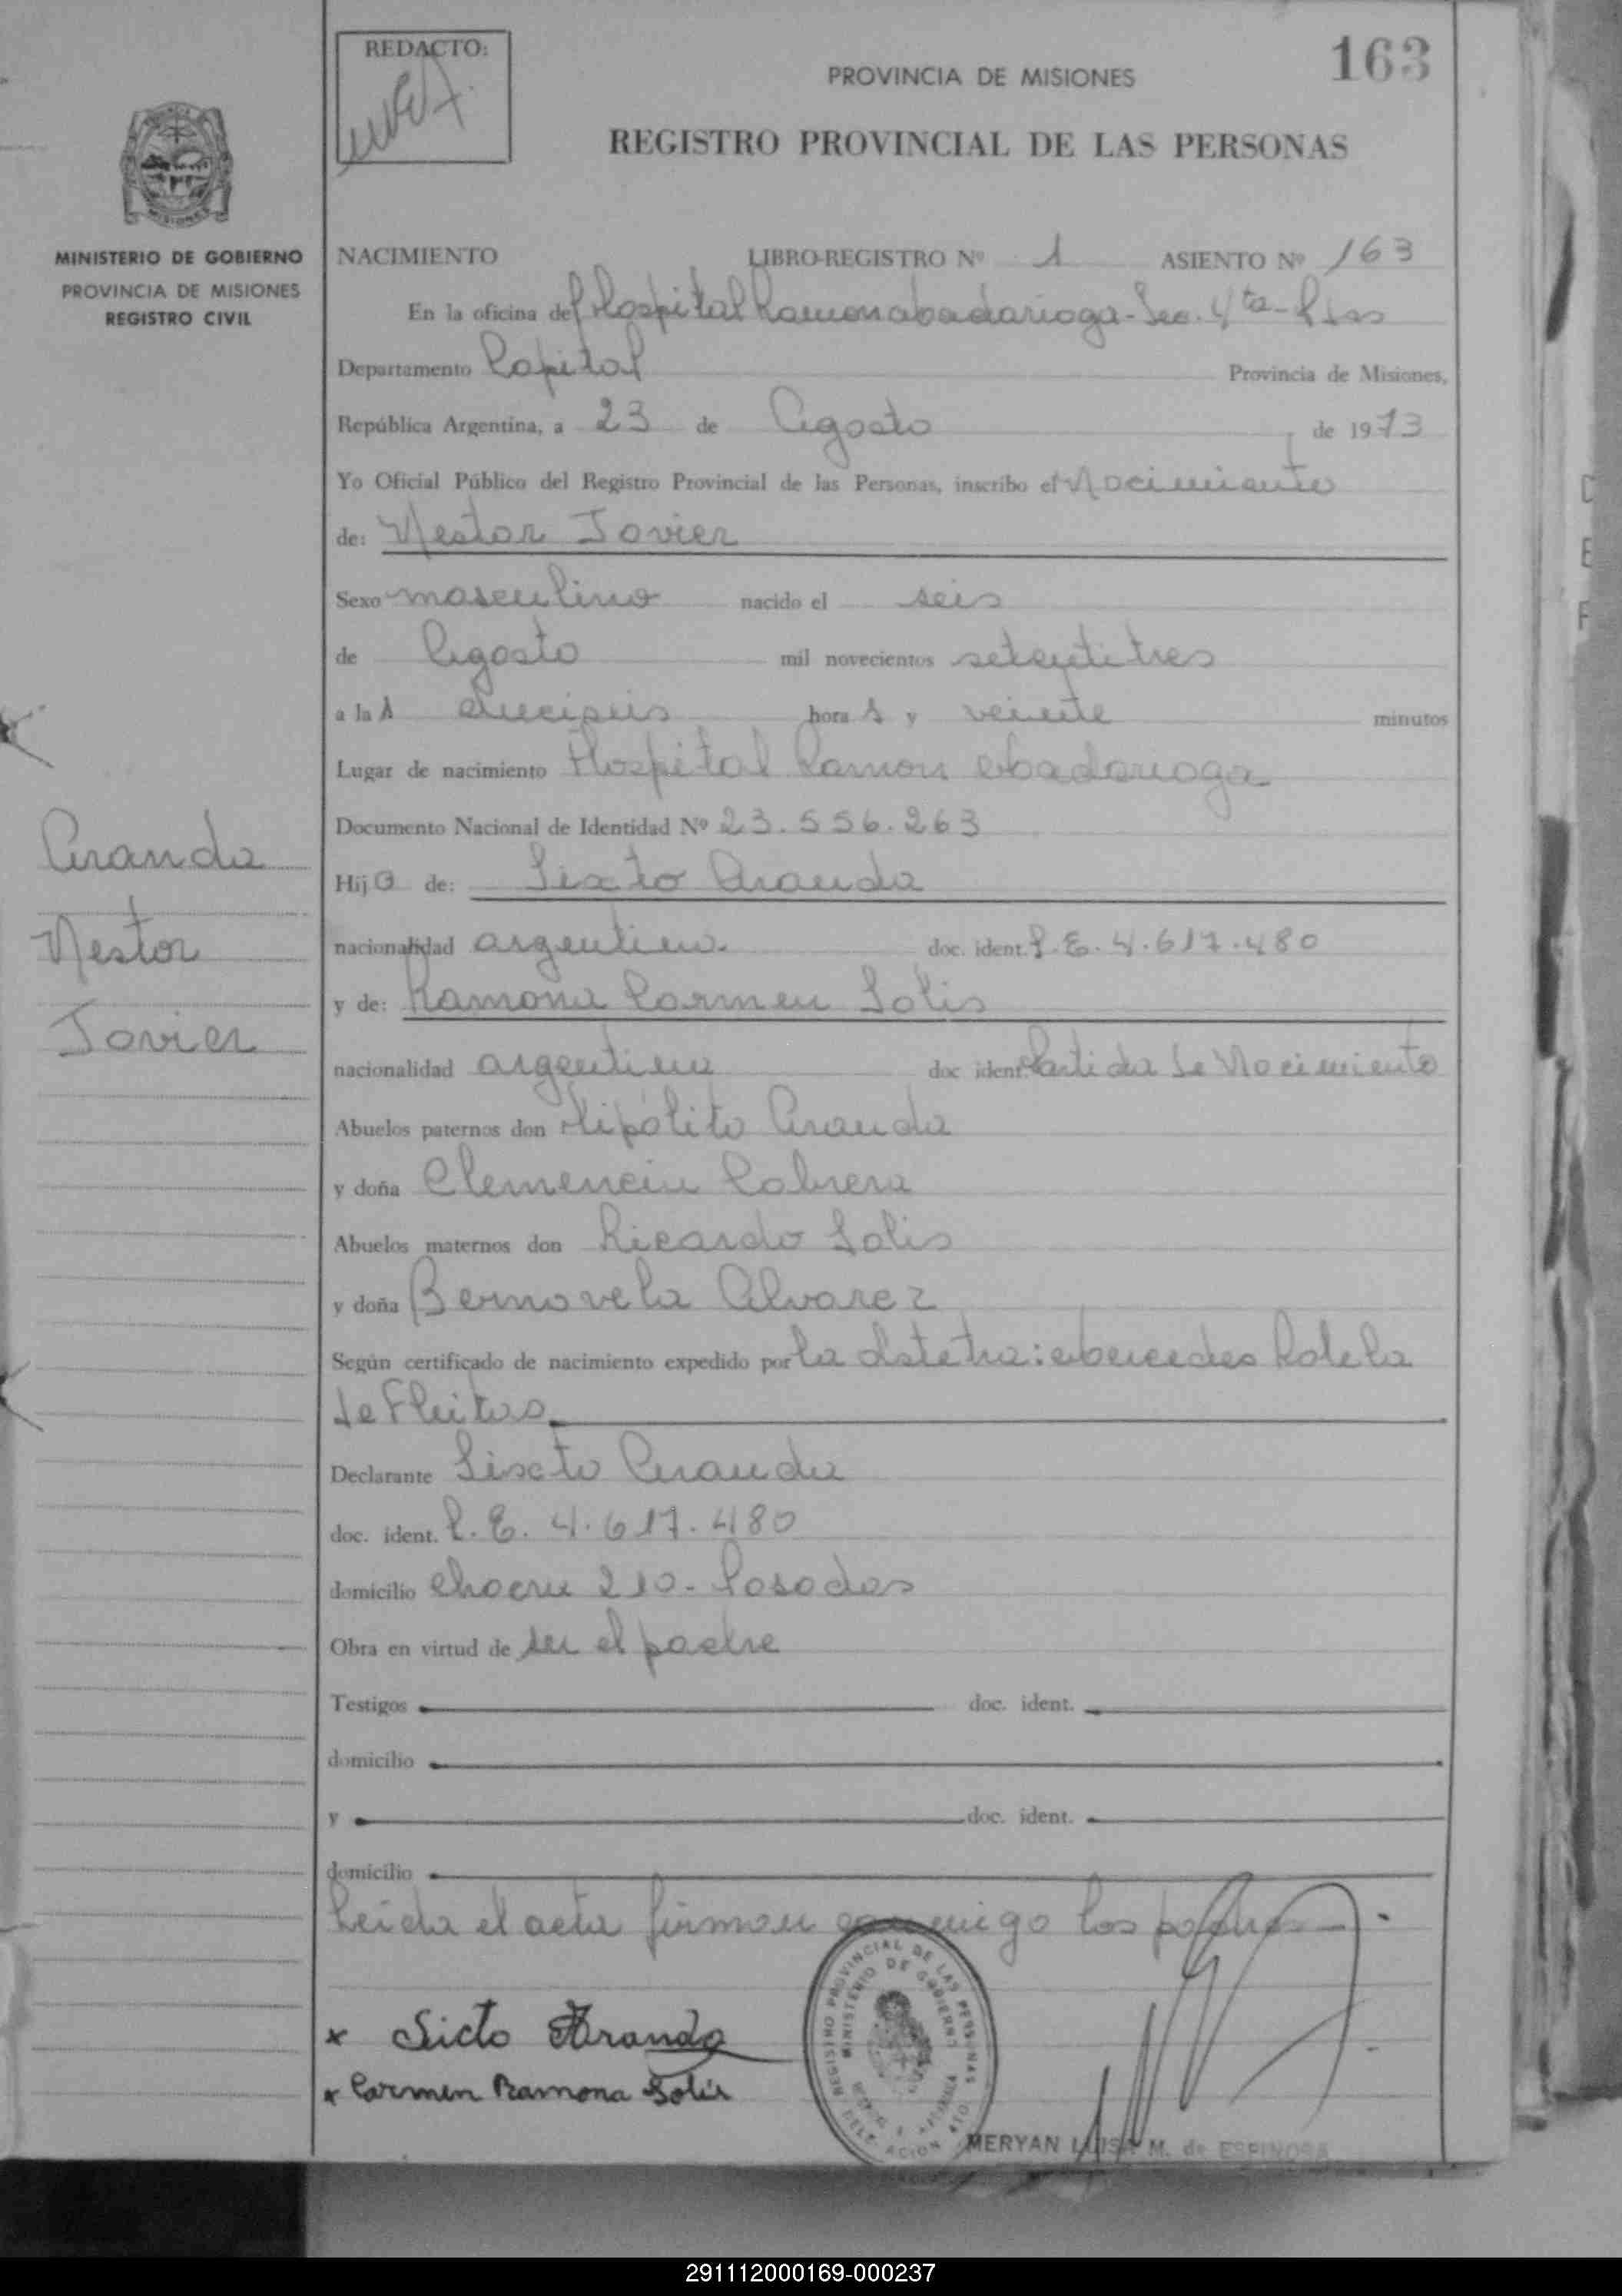 REDACTO:
163
PROVINCIA DE MISIONES
REGISTRO PROVINCIAL DE LAS PERSONAS
MINISTERIO DE GOBIERNO
PROVINCIA DE MISIONES
REGISTRO CIVIL
NACIMIENTO LIBRO-REGISTRO Nº 1 ASIENTO Nº 163
En la oficina del Hospital Ramon abadarioga - Sec. 4ta - Pdas
Departamento Capital Provincia de Misiones,
República Argentina, a 23 de Agosto de 1973
Yo Oficial Público del Registro Provincial de las Personas, inscribo el Nacimiento
de: Nestor Javier
Sexo masculino nacido el seis
de Agosto mil novecientos setentitres
a las dieciseis horas y veinte minutos
Lugar de nacimiento Hospital Ramon abadarioga
Documento Nacional de Identidad Nº 23.556.263
Aranda
Nestor
Javier
Hijo de: Sixto Aranda
nacionalidad argentina doc. ident. L.E. 4.617.480
y de: Ramona Carmen Solis
nacionalidad argentina doc ident. Partida de Nacimiento
Abuelos paternos don Hipólito Aranda
y doña Clemencia Cabrera
Abuelos maternos don Ricardo Solis
y doña Alvarez
Según certificado de nacimiento expedido por la Obstetra: Mercedes Rolela
de Fleitas
Declarante Sixto Aranda
doc. ident. L.E. 4.617.480
domicilio 210 - Posadas
Obra en virtud de ser el padre
Testigos doc. ident.
domicilio
y doc. ident.
domicilio
Leida el acta firman conmigo los padres
REGISTRO PROVINCIAL DE LAS PERSONAS
MINISTERIO DE GOBIERNO
x Sicto Aranda
x Carmen Ramona Solis
MERYAN LUISA M. de ESPINOSA
291112000169-000237